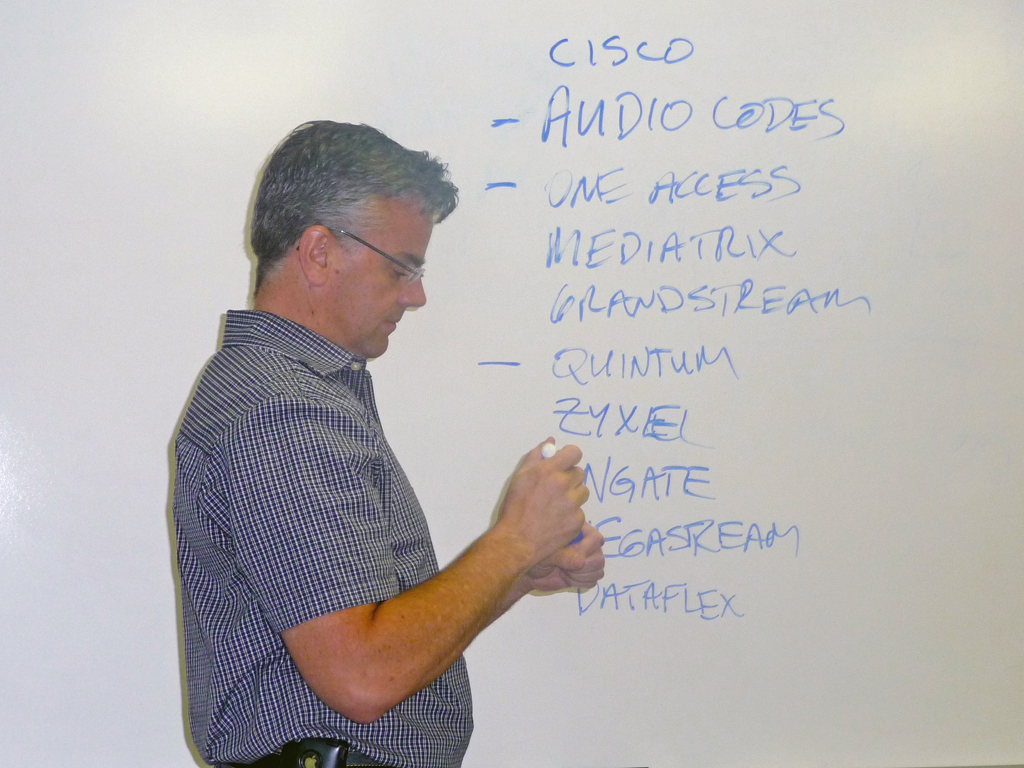 CISCO
- AUDIO CODES
- ONE ACCESS
MEDIATRIX
GRANDSTREAM
- QUINTUM
ZYXEL
NGATE
EGASTREAM
DATAFLEX